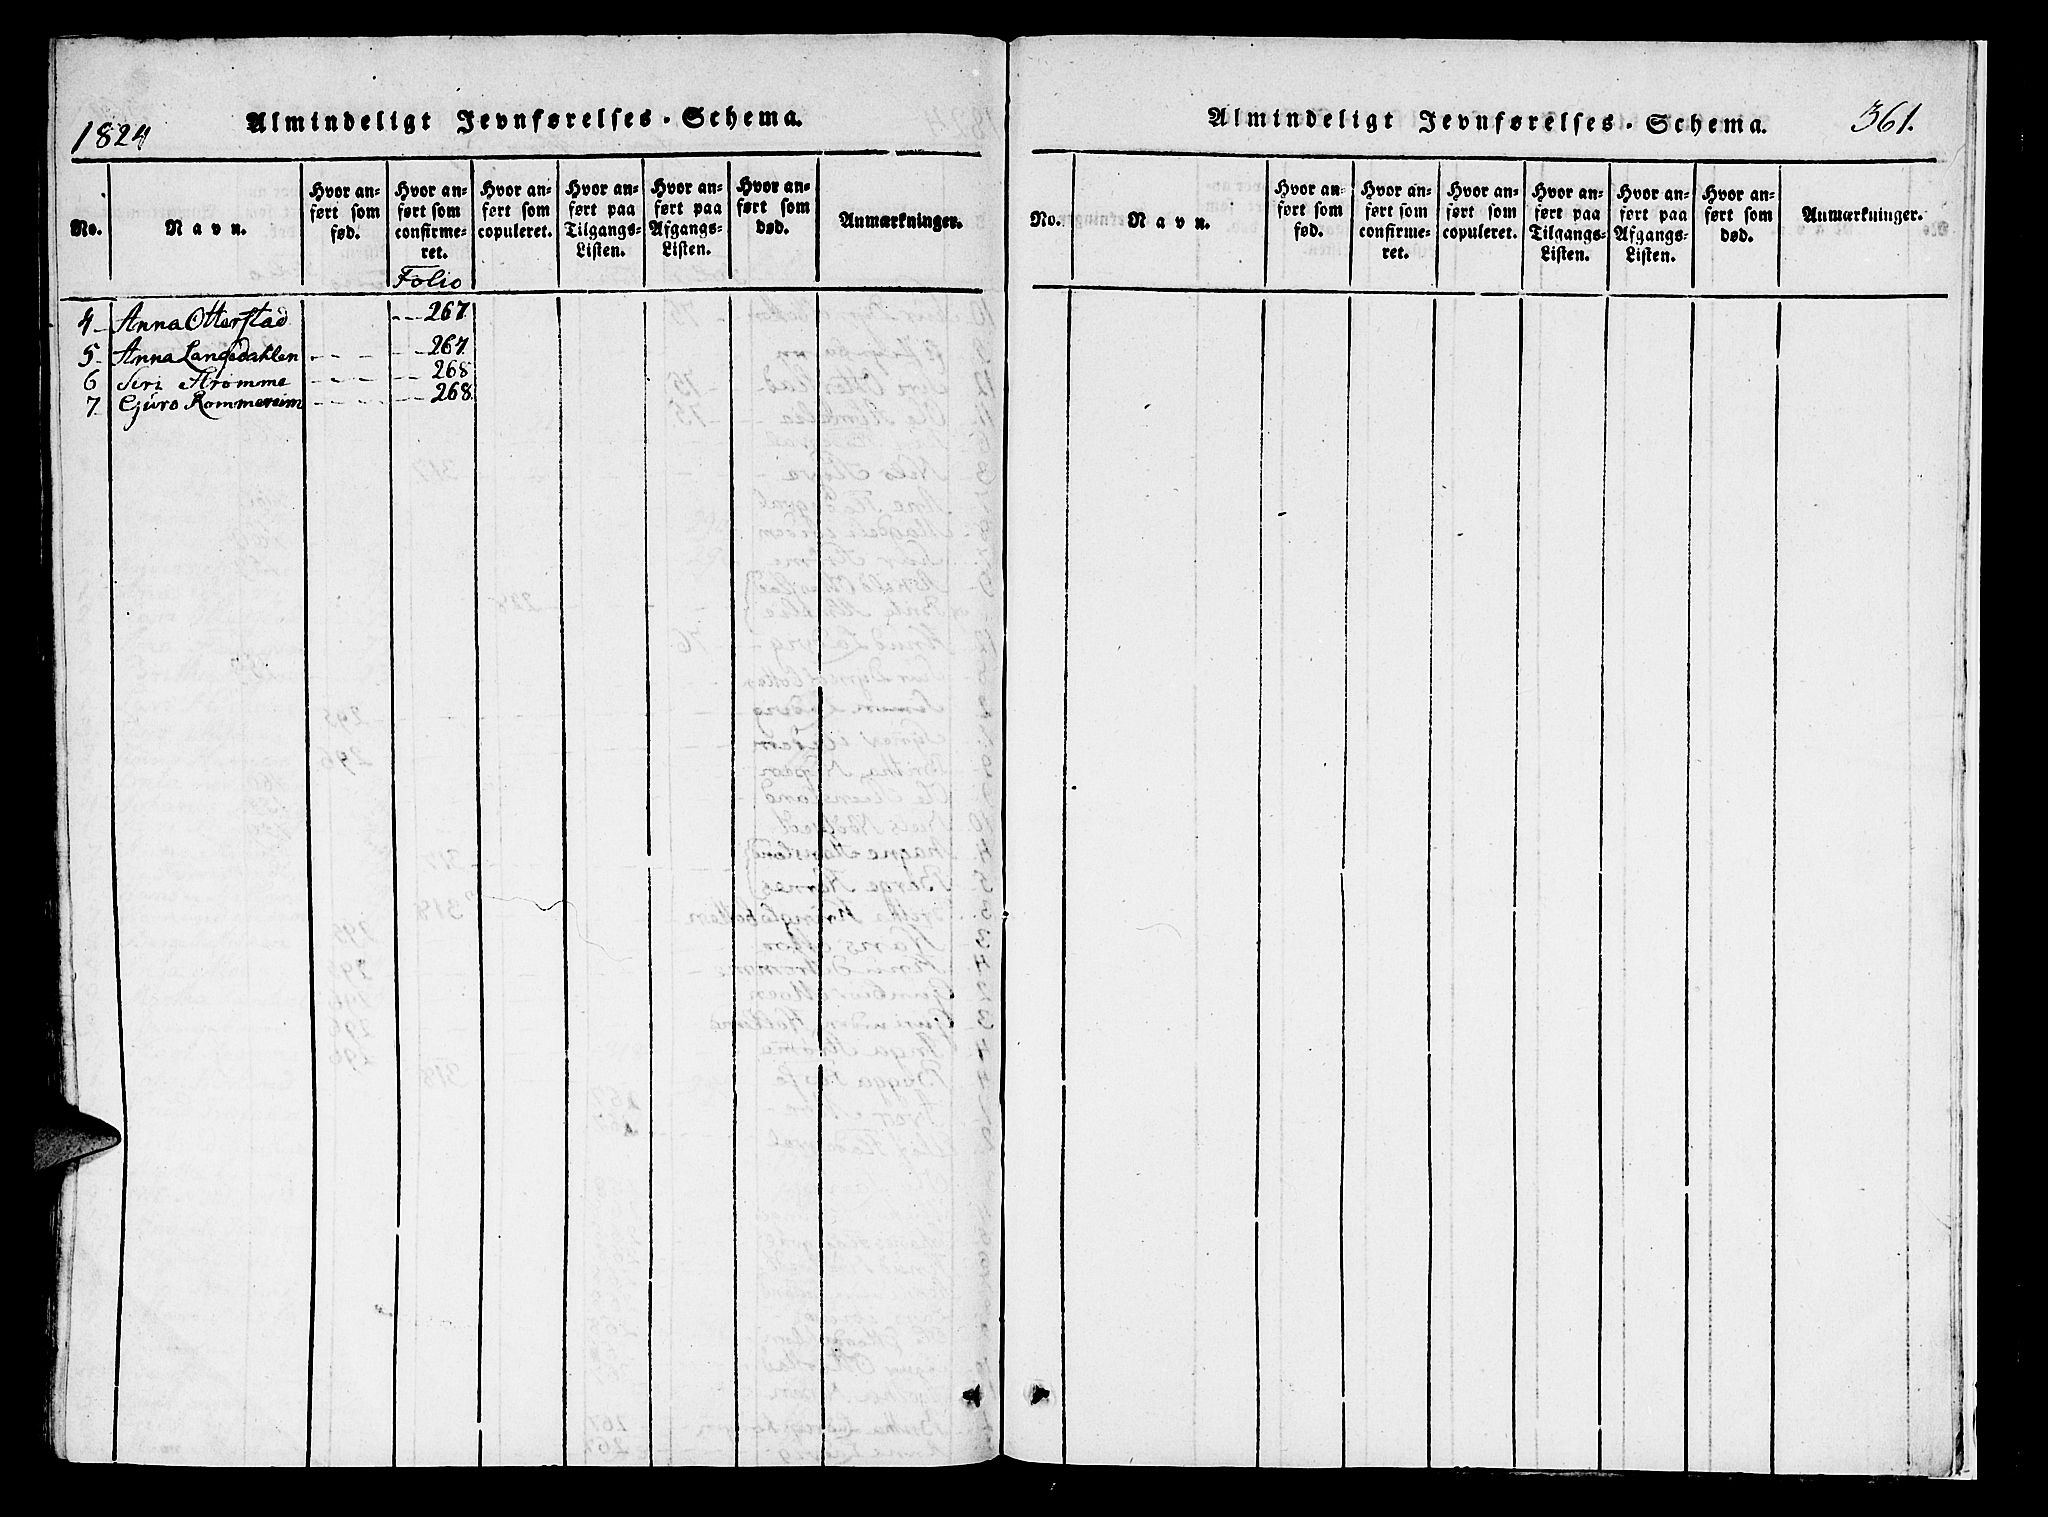 1824
Almindeligt Jevnførelses-Schema.
No.
Navn.
Hvor an-
ført som
fød.
Hvor an-
ført som
confirme-
ret.
Hvor an-
ført som
copuleret.
Hvor an-
ført paa
Tilgangs-
Listen.
Hvor an-
ført paa
Afgangs-
Listen.
Hvor an-
ført som
død.
Anmærkninger.
Folio
4 Anna Otterstad 267
5 Anna Langedahlen 267
6 Siri Strømme 268
7 Guro Rommereim 268
Almindeligt Jevnførelses-Schema.
361.
No.
Navn.
Hvor an-
ført som
fød.
Hvor an-
ført som
confirme-
ret.
Hvor an-
ført som
copuleret.
Hvor an-
ført paa
Tilgangs-
Listen.
Hvor an-
ført paa
Afgangs-
Listen.
Hvor an-
ført som
død.
Anmærkninger.